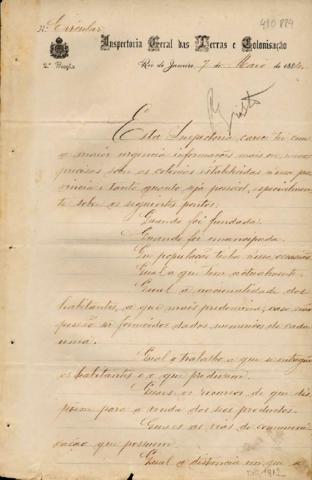 Circular
480 884
Inspectoria Geral das Terras e Colonisação
2ª Secção
Rio de Janeiro, 7 de Maio de 188
Esta Inspectoria carece ter com
a maior urgencia informações mais ou menos
precisas sobre as colonias estabelecidas n'essa pro
vincia e tanto quanto seja possivel, especialmen
te sobre os seguintes pontos.
Quando foi fundada.
Quando foi emancipada.
Que população tinha n'essa occasião.
Qual a que tem actualmente.
Qual a nacionalidade dos
habitantes, a que mais predomina, caso não
possão ser fornecidos dados numericos de cada
uma.
Qual o trabalho a que se entregão
os habitantes e o que produzem.
Quaes os recursos de que dis
põem para a venda dos seus productos.
Quaes as vias de communi
cação que possuem.
Qual a distancia em que a